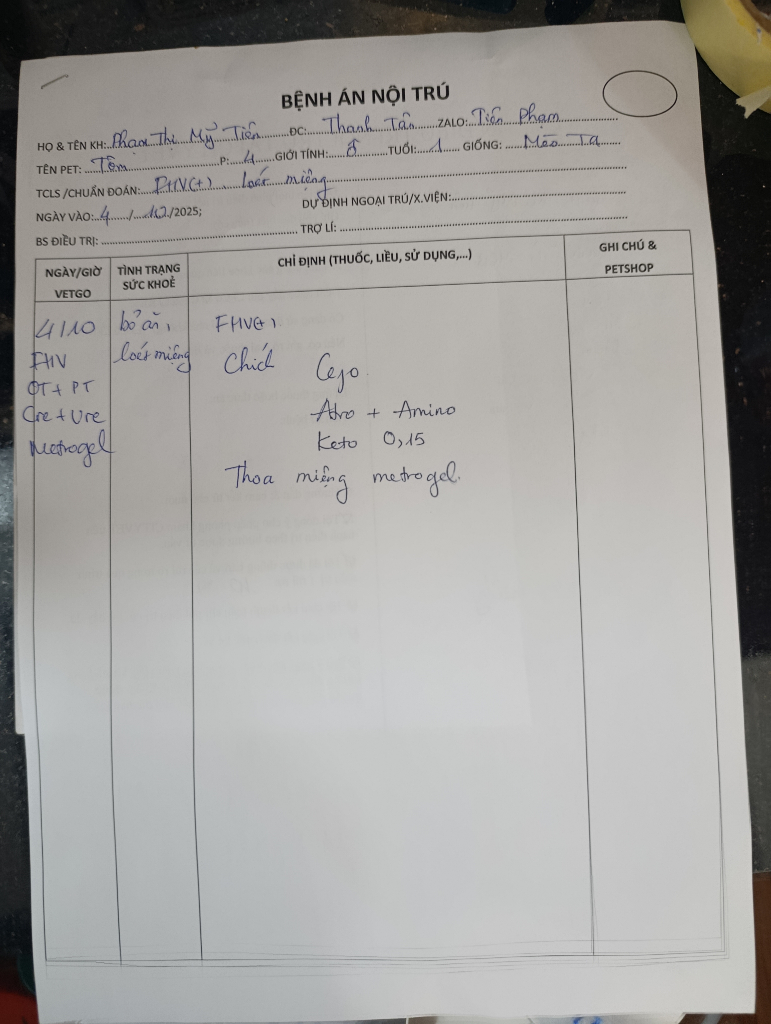 BỆNH ÁN NỘI TRÚ
HỌ & TÊN KH: Phạm Thị Mỹ Tiên ĐC: Thanh Tân ZALO: Tiên Phạm
TÊN PET: Tôm P: 4 GIỚI TÍNH: TUỔI: 1 GIỐNG: Mèo Ta
TCLS /CHUẨN ĐOÁN: FHV(+) loét miệng
NGÀY VÀO: 4 / 10 /2025; DỰ ĐỊNH NGOẠI TRÚ/X.VIỆN:
BS ĐIỀU TRỊ: TRỢ LÍ:
NGÀY/GIỜ VETGO
TÌNH TRẠNG SỨC KHOẺ
CHỈ ĐỊNH (THUỐC, LIỀU, SỬ DỤNG,...)
GHI CHÚ & PETSHOP
4/10 bỏ ăn, FHV(+)
FHV loét miệng Chích
OT + PT
Atro + Amino
Cre + Ure
Keto 0,15
Metrogel
Thoa miệng metrogel.